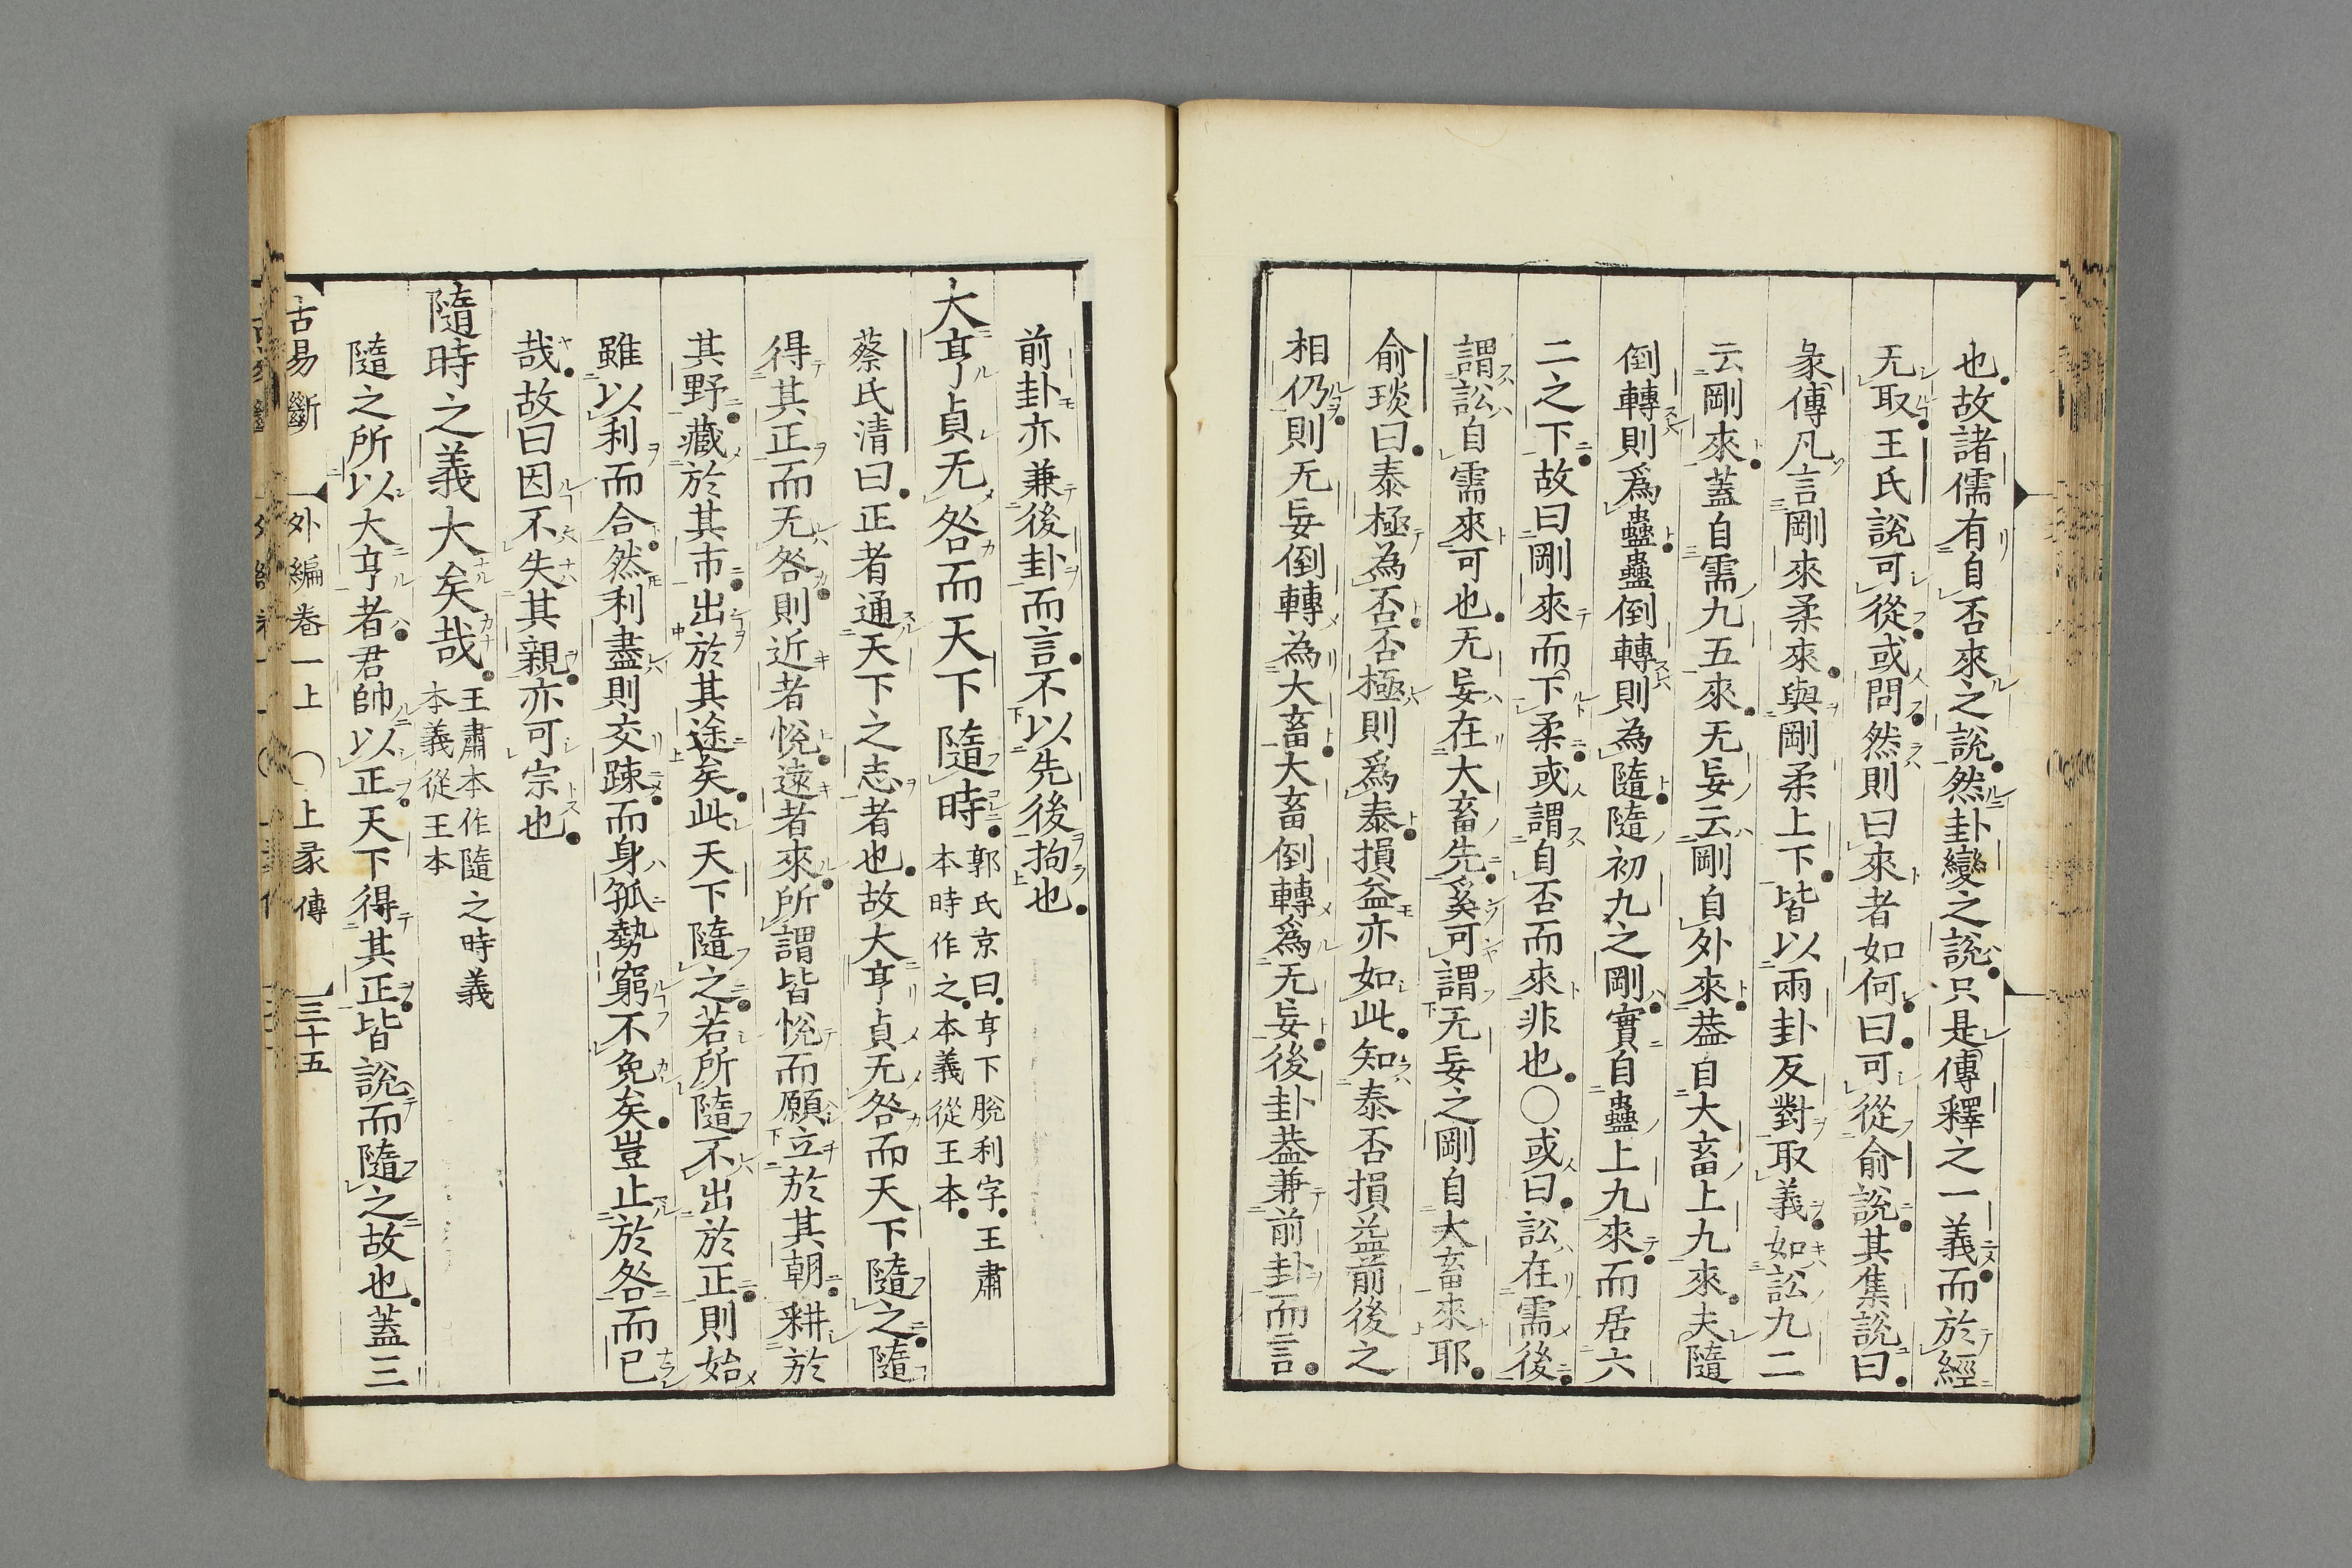 也故諸儒有自否來之說然卦變之說只是傳釋之一義而於經
无取王氏說可從或問然則曰來者如何曰可從俞說其集說曰
彖傳凡言剛來柔來與剛柔上下皆以兩卦反對取義如訟九二
云剛來蓋自需九五來无妄云剛自外來蓋自大畜上九來夫隨
倒轉則爲蠱蠱倒轉則為隨隨初九之剛實自蠱上九來而居六
二之下故曰剛來而下柔或謂自否而來非也○或曰訟在需後
謂訟自需來可也无妄在大畜先奚可謂无妄之剛自大畜來耶
俞琰曰泰極為否否極則爲泰損益亦如此知泰否損益前後之
相仍則无妄倒轉為大畜大畜倒轉爲无妄後卦蓋兼前卦而言
前卦亦兼後卦而言不以先後拘也
大亨貞无咎而天下隨時郭氏京曰亨下脫利字王肅
本時作之本義從王本
蔡氏清曰正者通天下之志者也故大亨貞无咎而天下隨之隨
得其正而无咎則近者悅遠者來所謂皆悅而願立於其朝耕於
其野藏於其市出於其途矣此天下隨之若所隨不出於正則始
雖以利而合然利盡則交踈而身孤勢窮不免矣豈止於咎而已
哉故曰因不失其親亦可宗也
隨時之義大矣哉王肅本作隨之時義
本義從王本
隨之所以大亨者君帥以正天下得其正皆說而隨之故也蓋三
古易斷 外編卷一上 ○上彖傳 三十五